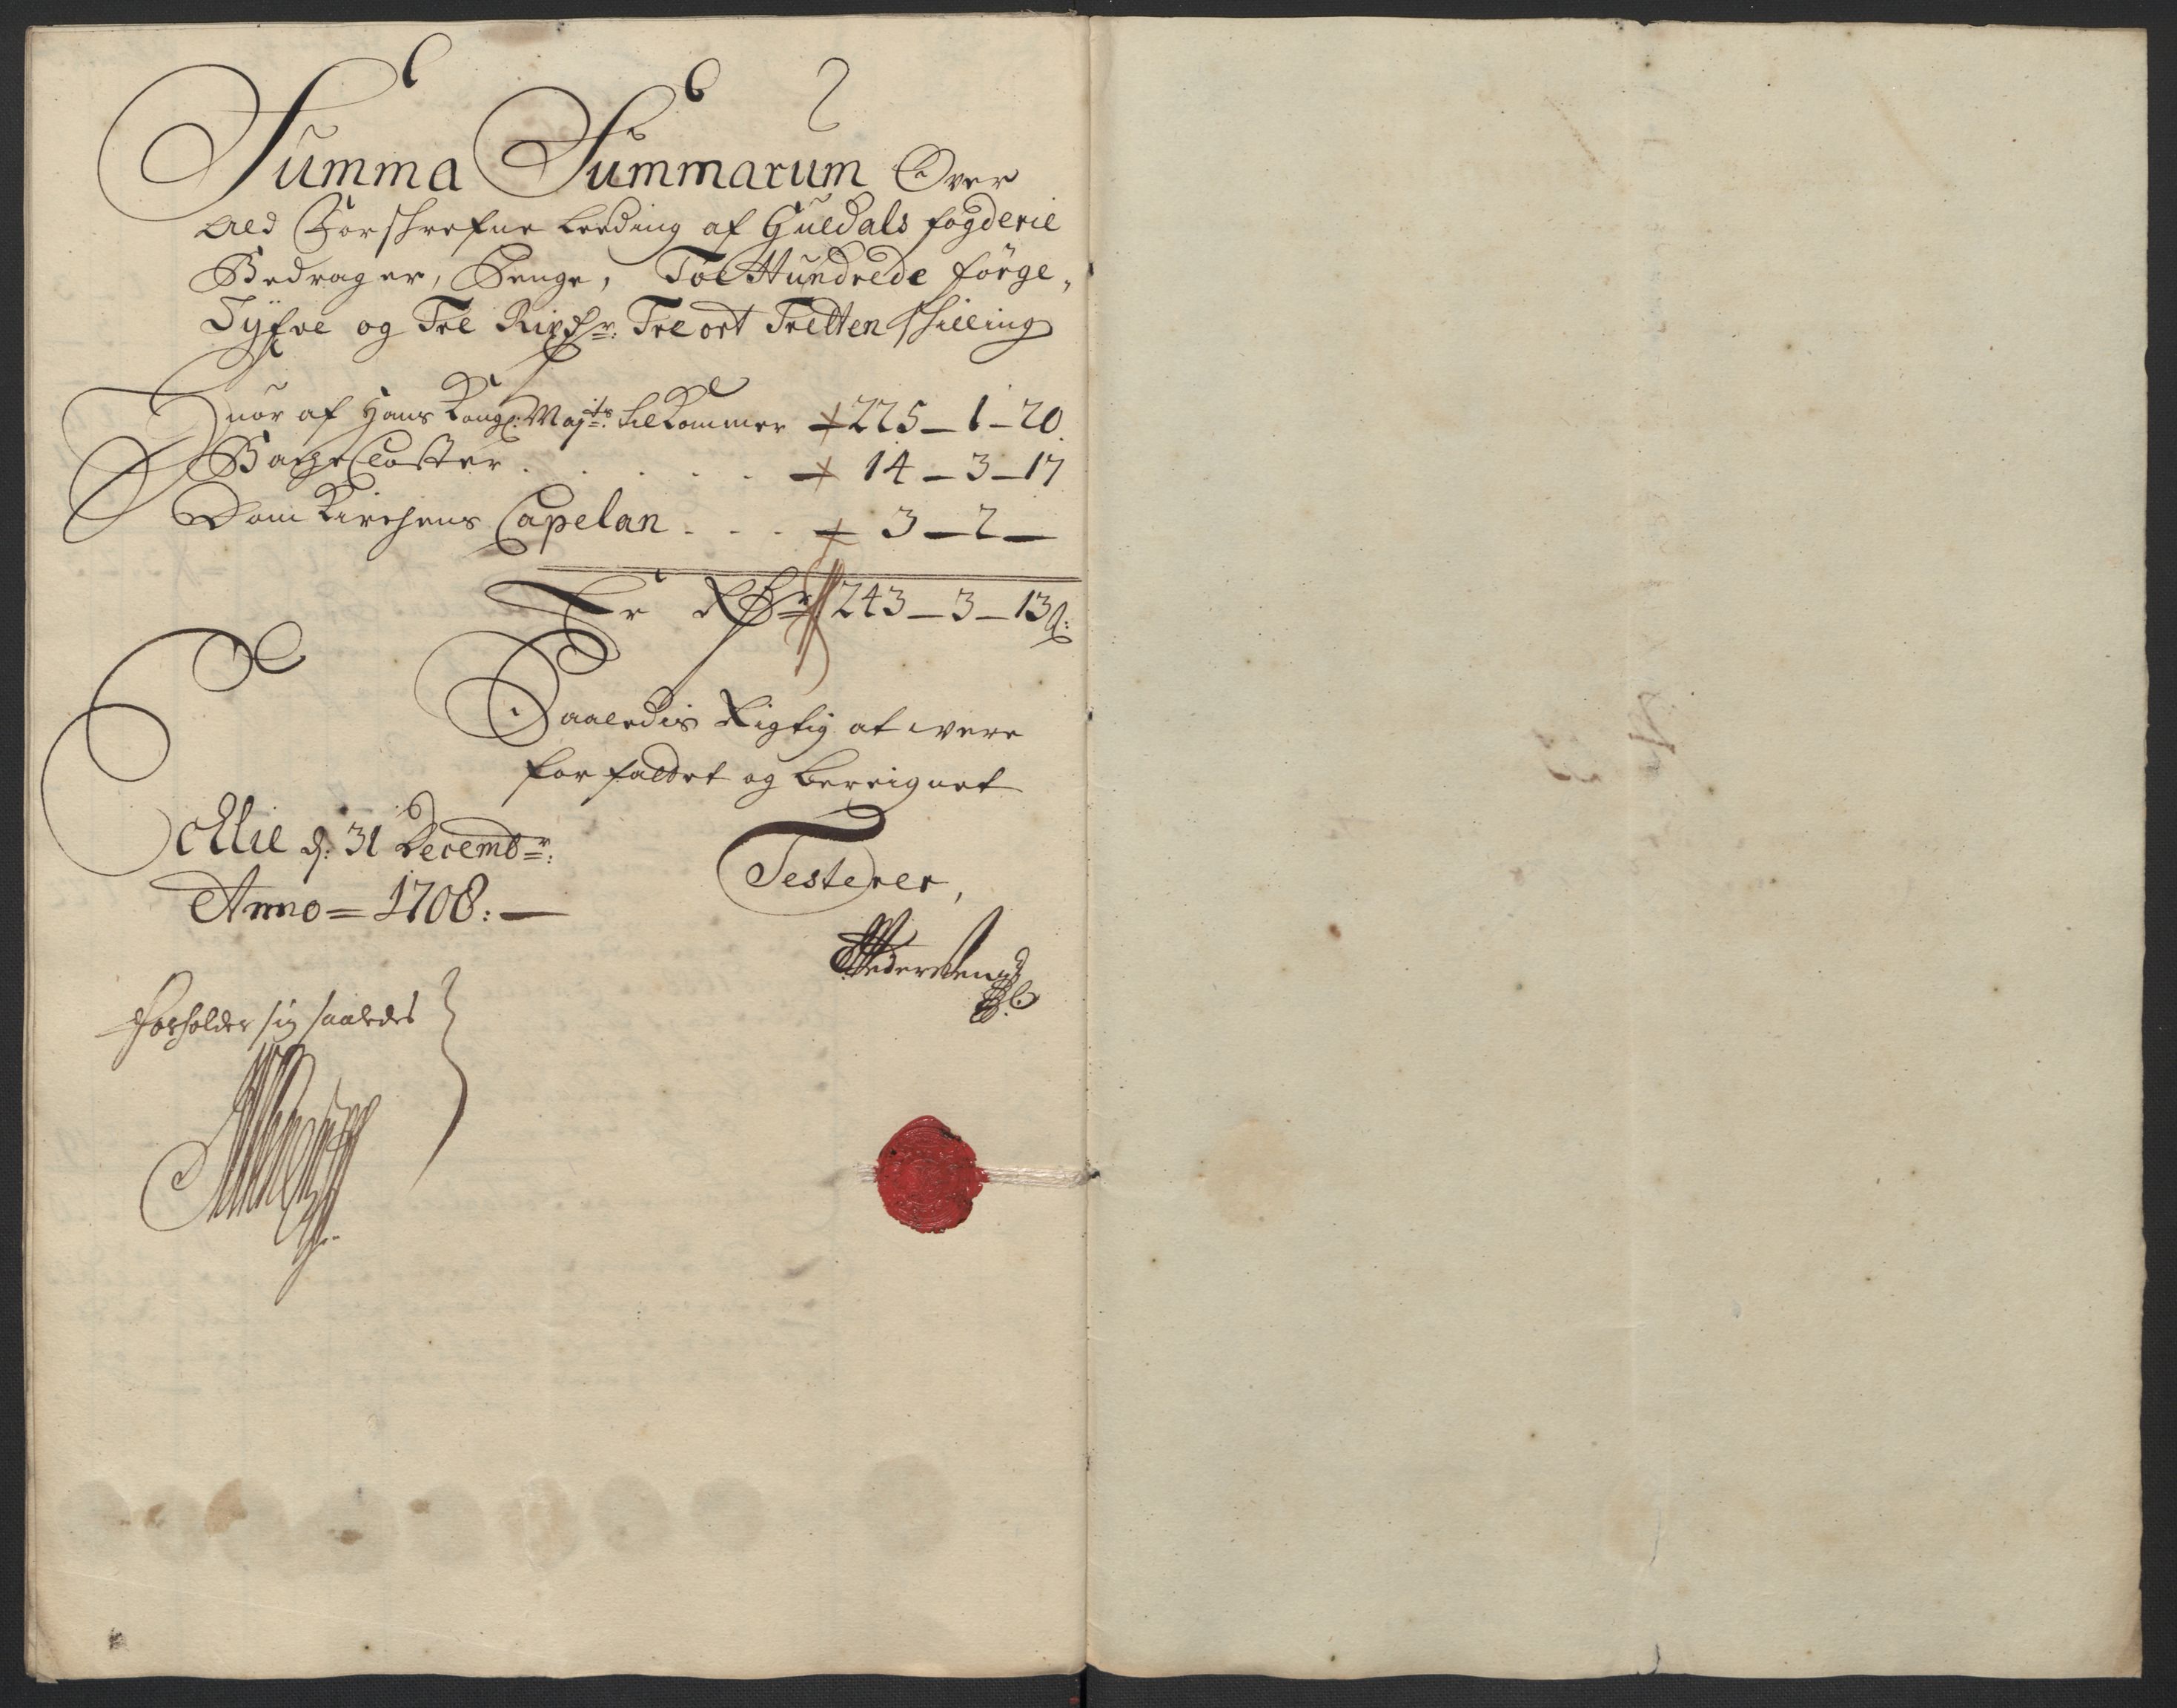 Summa Summarum Over
Ald Forschrefne Leeding af Guldals fogderie
Bedrager, Penge, Toe Hundrede förge,
Tÿfve og Tre Rixdr: Tre ort Tretten skilling
Huor af Hans Kongl: Majts: tilKommer 225 – 1 – 20
Bache Closter . . . . . 14 – 3 – 17
Dom Kirchens Capelan . . . 3 – 2 –
Er Rdr 243 – 3 – 13 s:
Saaledis Rigtig at were
forfaldet og bereignet
d: 31 Decembr:
Anno = 1708: —
Testerer,
forholder sig saaledes